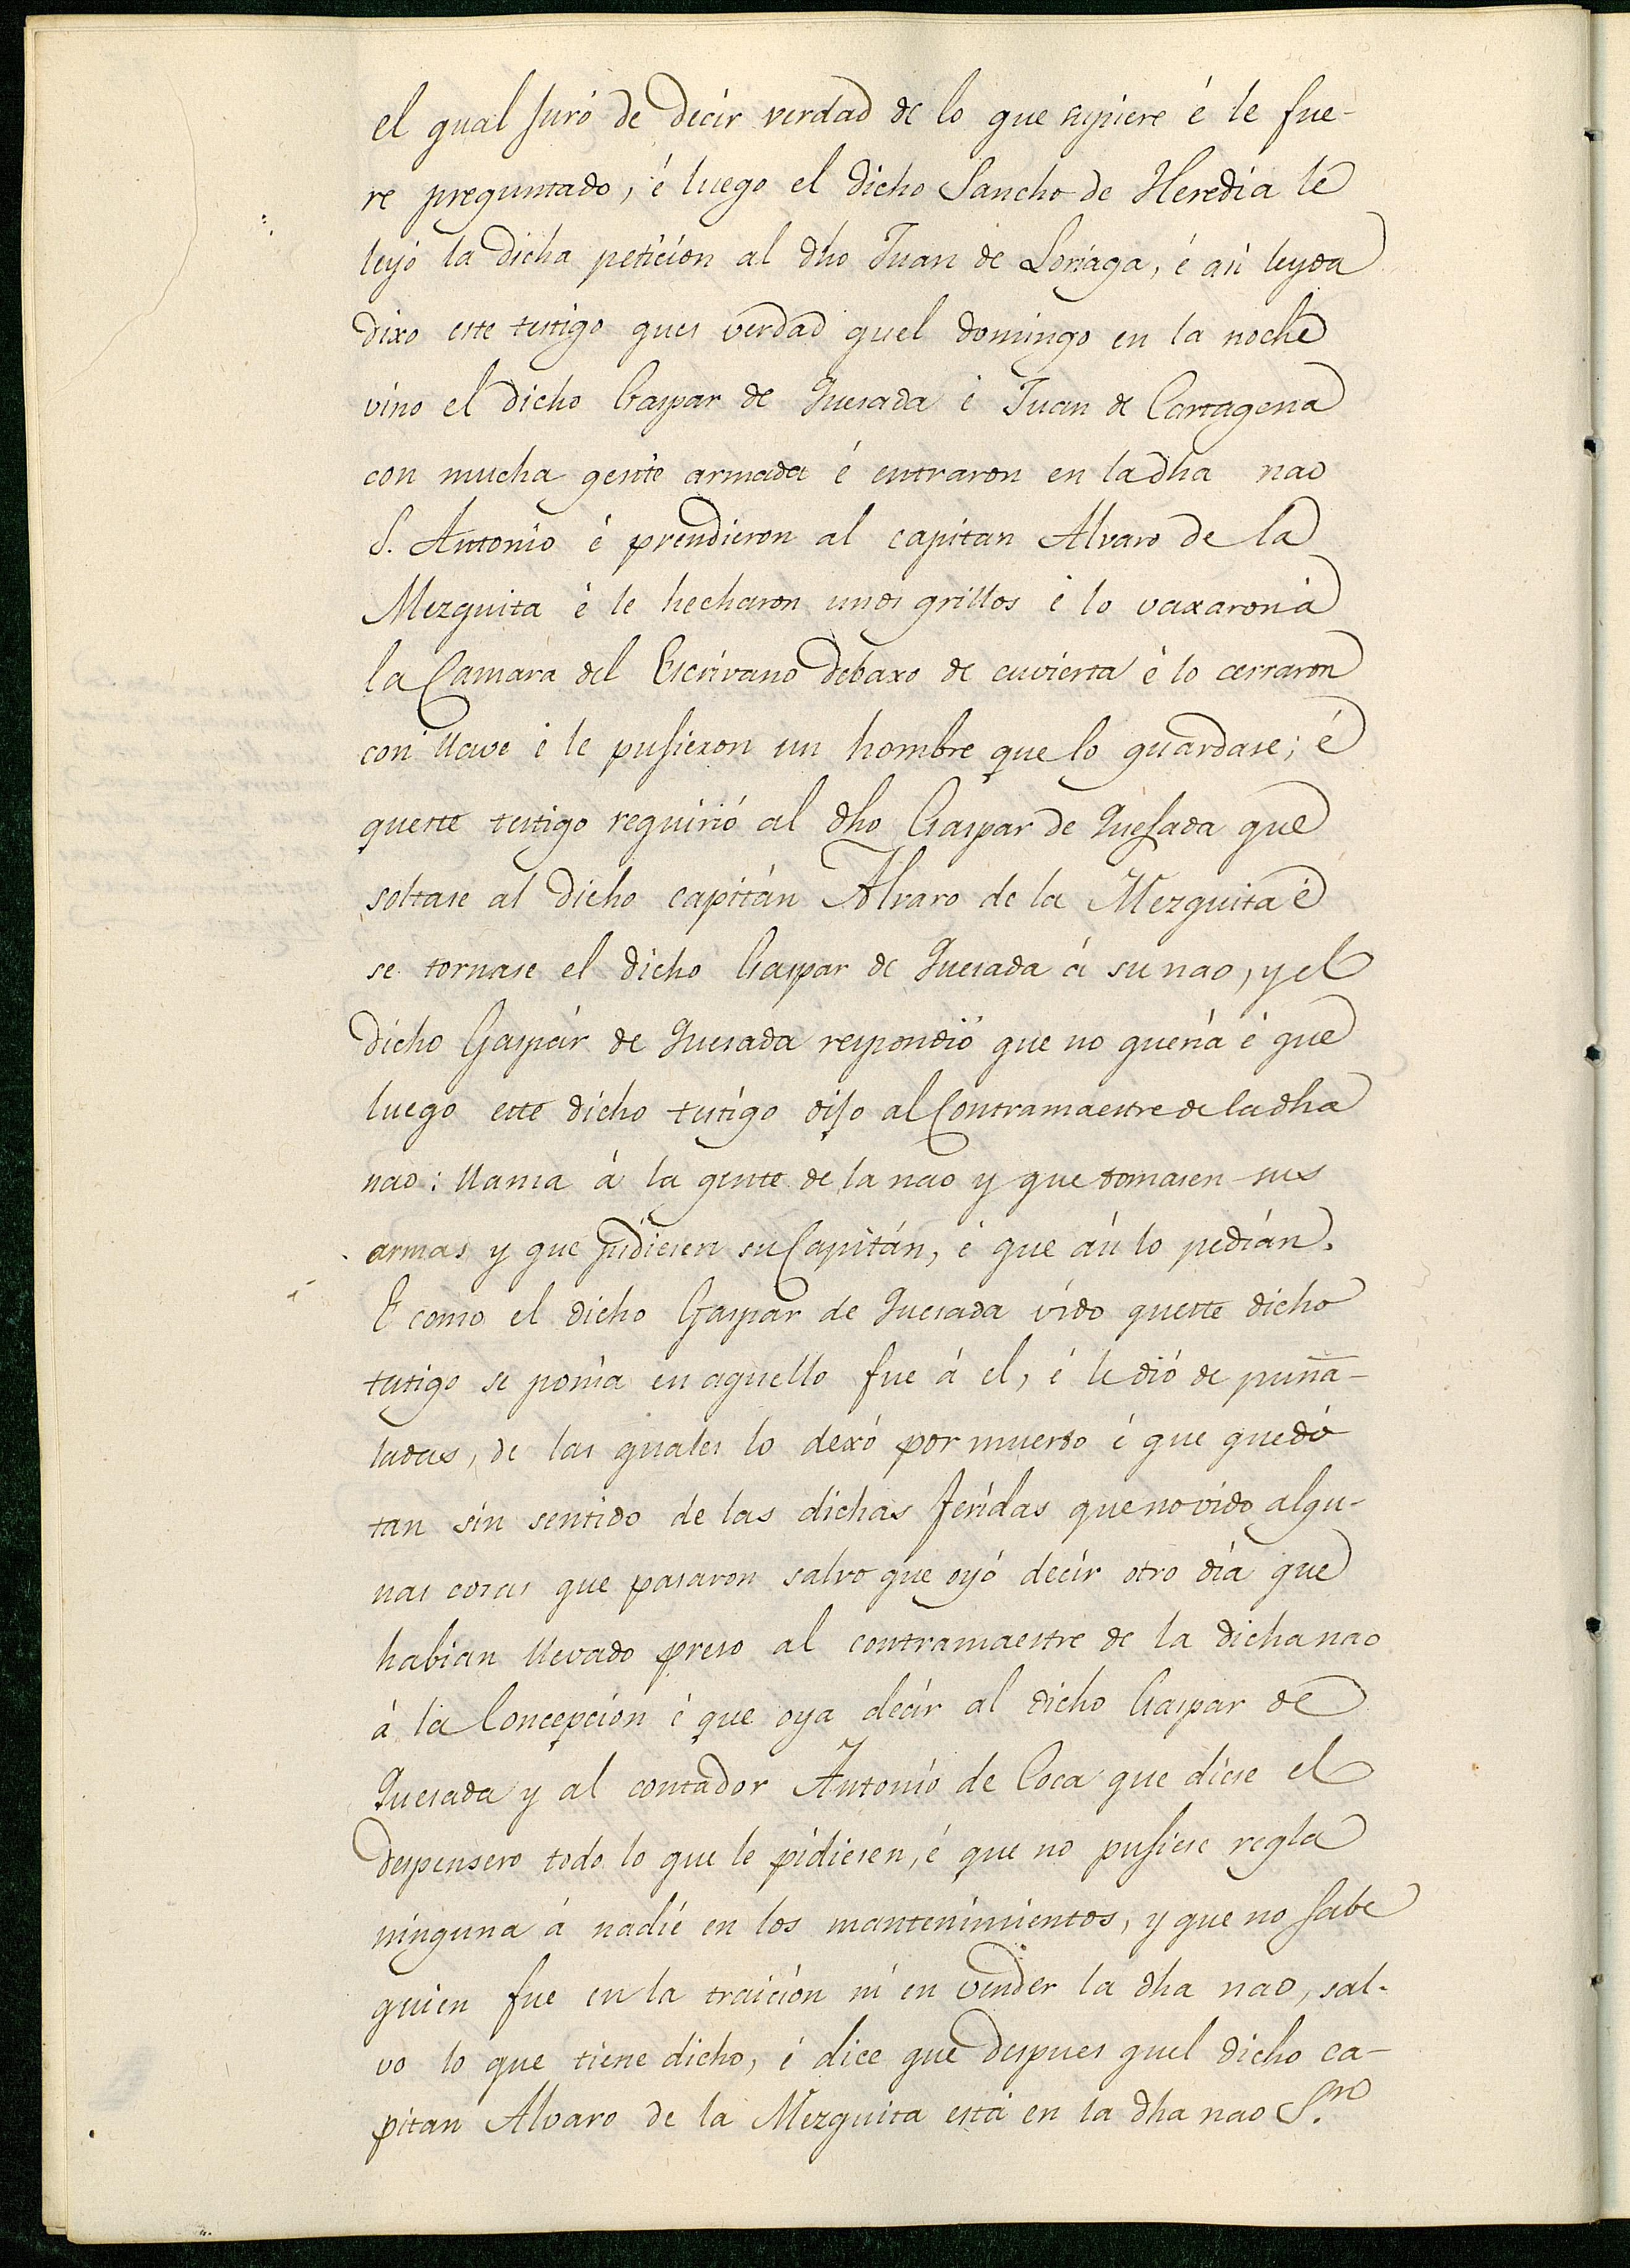 el qual juró de decir verdad de lo que supiere é le fue-
re preguntado, é luego el dicho Sancho de Heredia le
leyó la dicha petición al dho Juan de Loriaga, é así leyda
dixo este testigo ques verdad quel domingo en la noche
vino el dicho Gaspar de Quesada é Juan de Cartagena
con mucha gente armada é entraron en la dha nao
S. Antonio é prendieron al capitan Alvaro de la
Mezquita é le hecharon unos grillos é lo vaxaron á
la Camara del Escrivano debaxo de cuvierta é lo cerraron
con llave é le pusieron un hombre que lo guardase; é
queste testigo requirió al dho Gaspar de Quesada que
soltase al dicho capitán Alvaro de la Mezquita é
se tornase el dicho Gaspar de Quesada á su nao, y el
dicho Gaspár de Quesada respondió que no quería é que
luego este dicho testigo dijo al Contramaestre de la dha
nao: llama á la gente de la nao y que tomasen sus
armas y que pidiesen su Capitán, é que así lo pedían.
E como el dicho Gaspar de Quesada vido queste dicho
testigo se ponía en aquello fue á el, é le dió de puña-
ladas, de las quales lo dexó por muerto é que quedó
tan sin sentido de las dichas feridas que no vido algu-
nas cosas que pasaron salvo que oyó decir otro día que
habian llevado preso al contramaestre de la dicha nao
á la Concepción é que oya decir al dicho Gaspar de
Quesada y al contador Antonio de Coca que diese el
despensero todo lo que le pidiesen, é que no pusiese regla
ninguna á nadie en los mantenimientos, y que no sabe
quien fue en la traición ni en vender la dha nao, sal-
vo lo que tiene dicho, é dice que despues quel dicho ca-
pitan Alvaro de la Mezquita está en la dha nao S.n